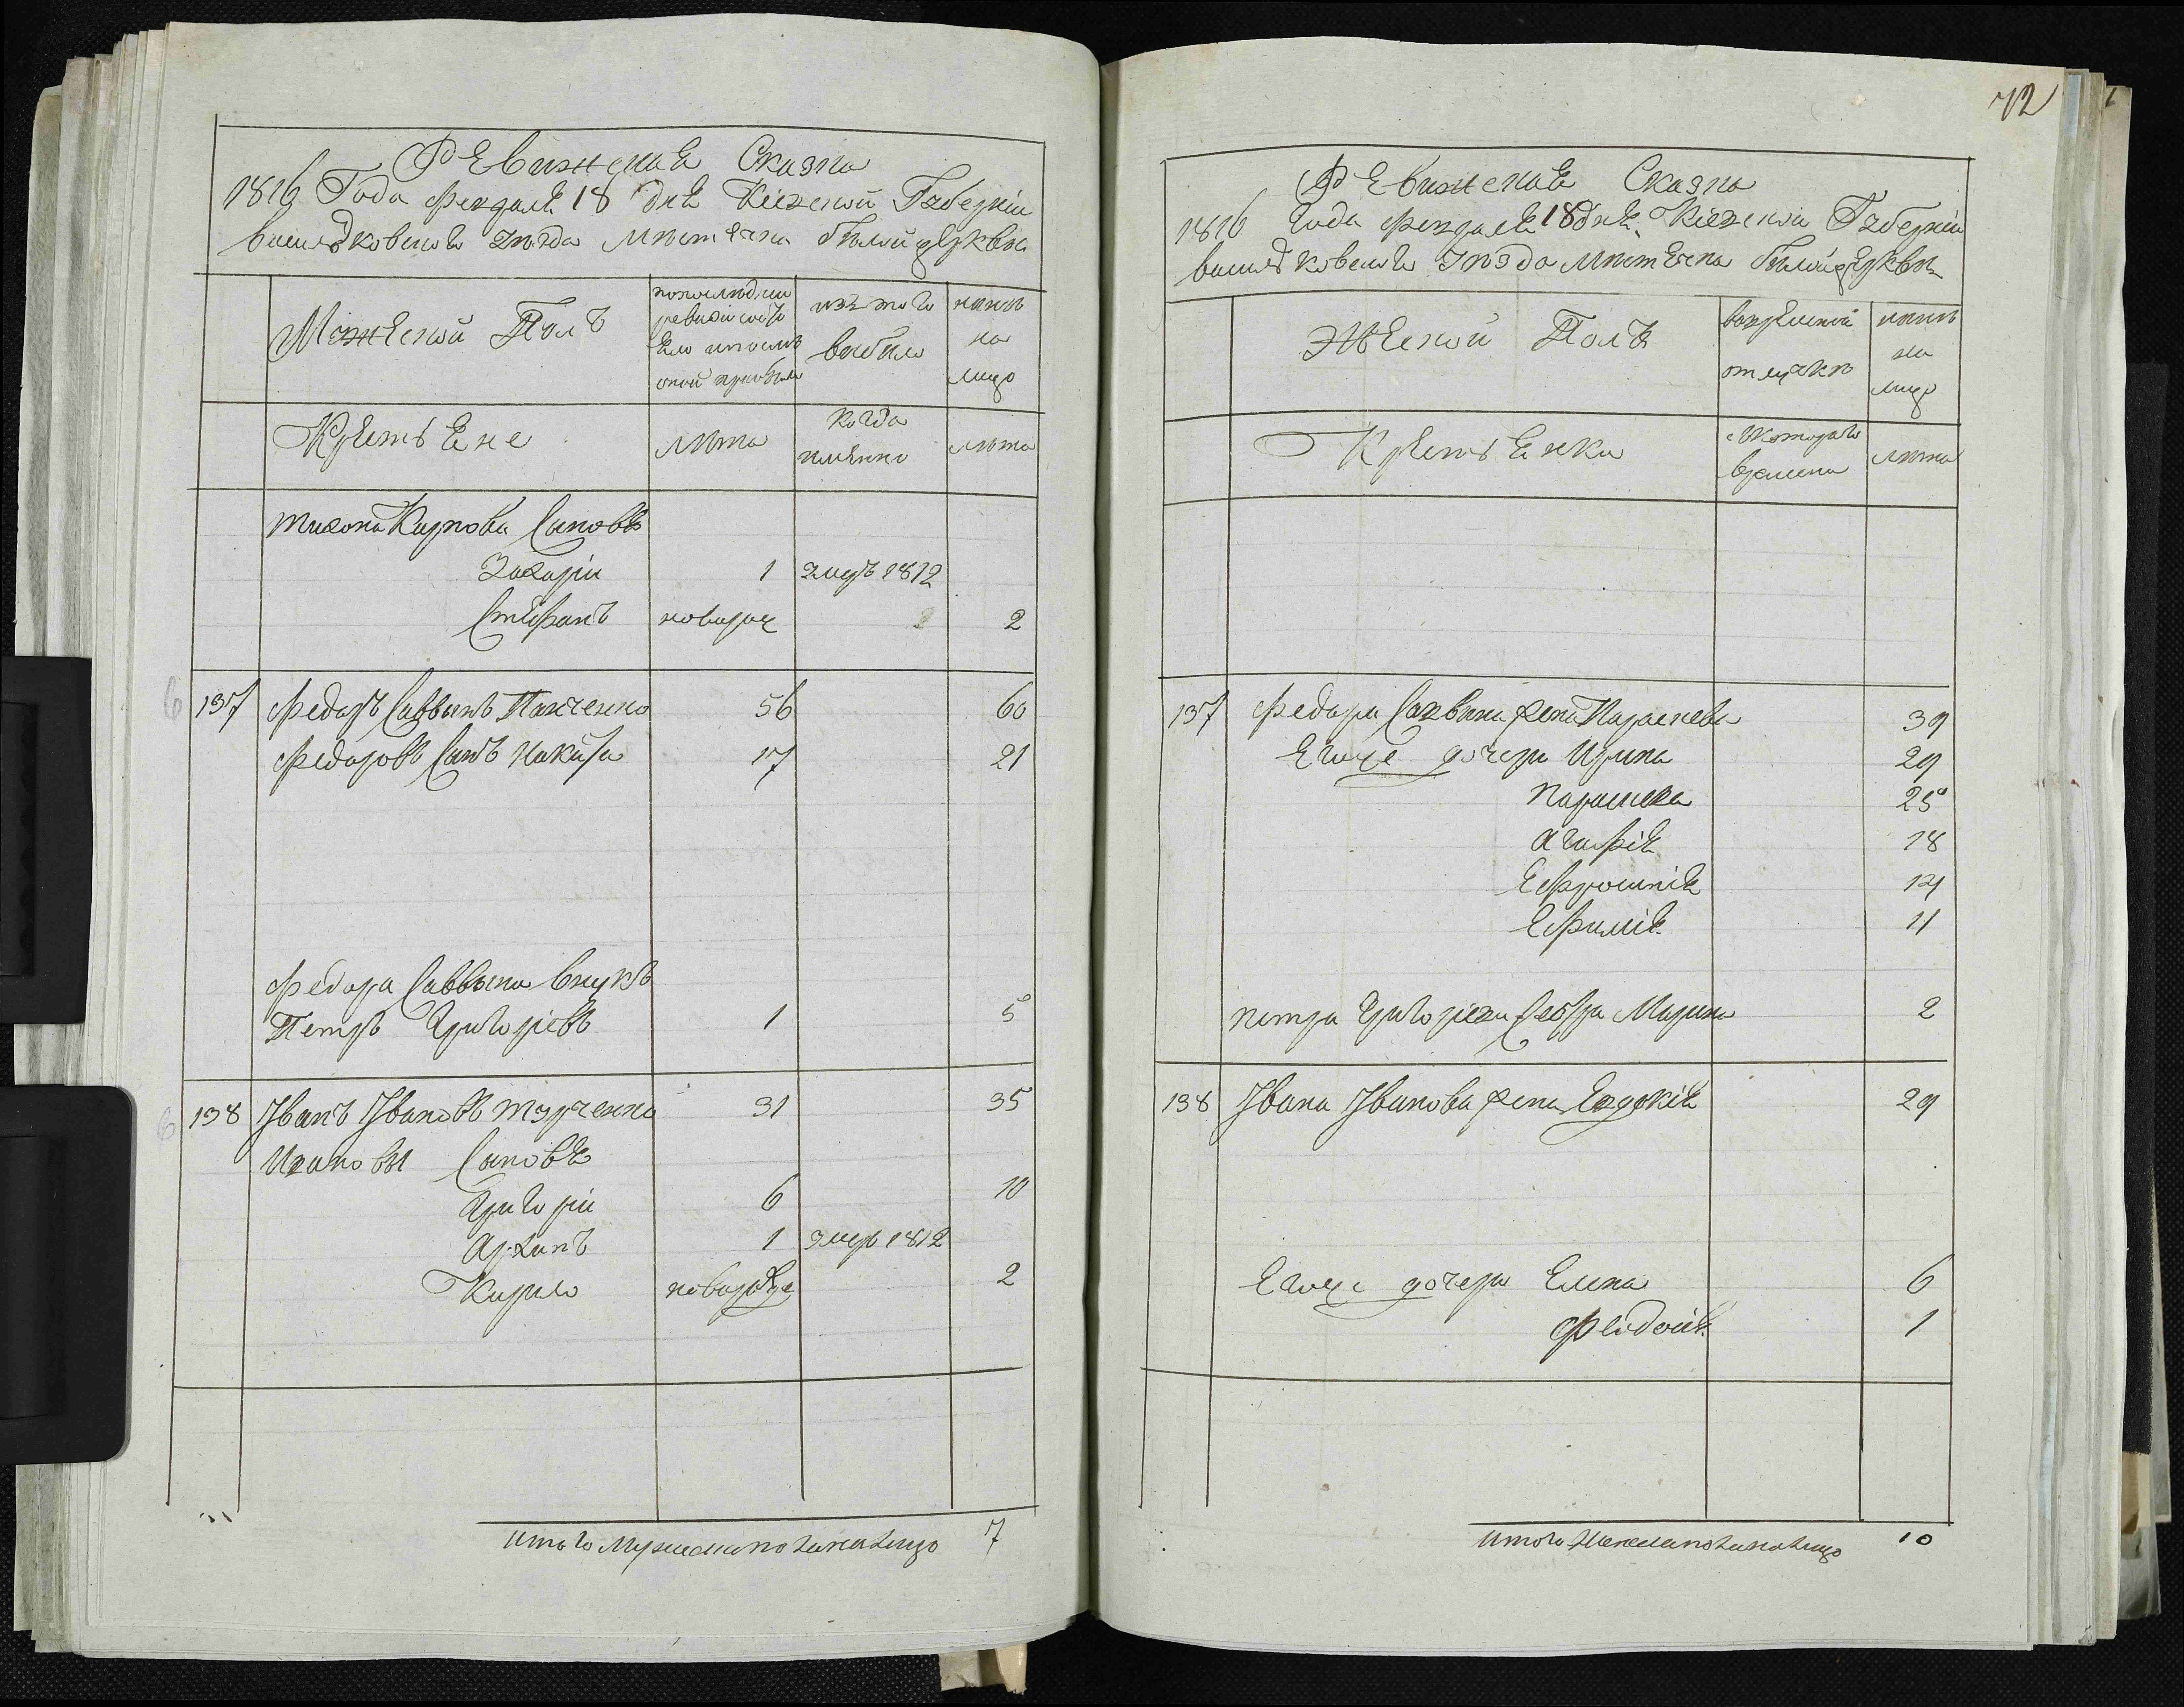 Ревижская Сказка
1816 Года февраля 18 дня Кіевской Губерніи
васильковского уезда местечка Белой церквы
Мужеской Полъ
по последней
ревизіи состо
яло и после
оной прибыло
изъ того
выбыло
ныне
на
лицо
Крестьяне
лета
когда
имянно
лета
Тихона Карпова Сыновья
Захарій
1
умеръ 1812
Стефанъ
новорож
2
137
Федоръ Саввинъ Панченко
56
60
Федоровъ Сынъ Никита
17
21
Федора Саввина внукъ
Петръ Григоріевъ
1
5
138
Іванъ Івановъ
31
35
Ивановы Сыновья
Григорій
6
10
Архипъ
1
умеръ 1812
Кирило
новорожде
2
Итого Мужеска пола на лицо 7
72
Ревижская Сказка
1816 Года февраля 18 дня Кіевской Губерніи
васильковского уезда местечка Белой церквы
Женской Полъ
во временной
отлучке
ныне
на
лицо
Крестьянки
с котораго
времени
лета
137
Федора Саввина жена Параскева
39
Егоже дочери Ирина
29
Параскева
25
Агафія
18
Ефросинія
14
Ефимія
11
Петра Григоріева сестра Марина
2
138
Івана Іванова жена Евдокія
29
Егоже дочери Елена
6
Феодосія
1
Итого Женска пола на лицо 10